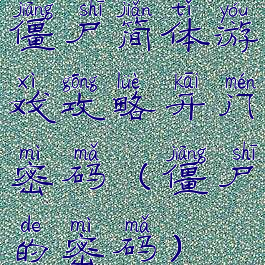 jiāng shī jiǎn tǐ yóu
僵尸简体游
xì gōng lüè kāi mén
戏攻略开门
mì mǎ jiāng shī
密码（僵尸
de mì mǎ
的密码）